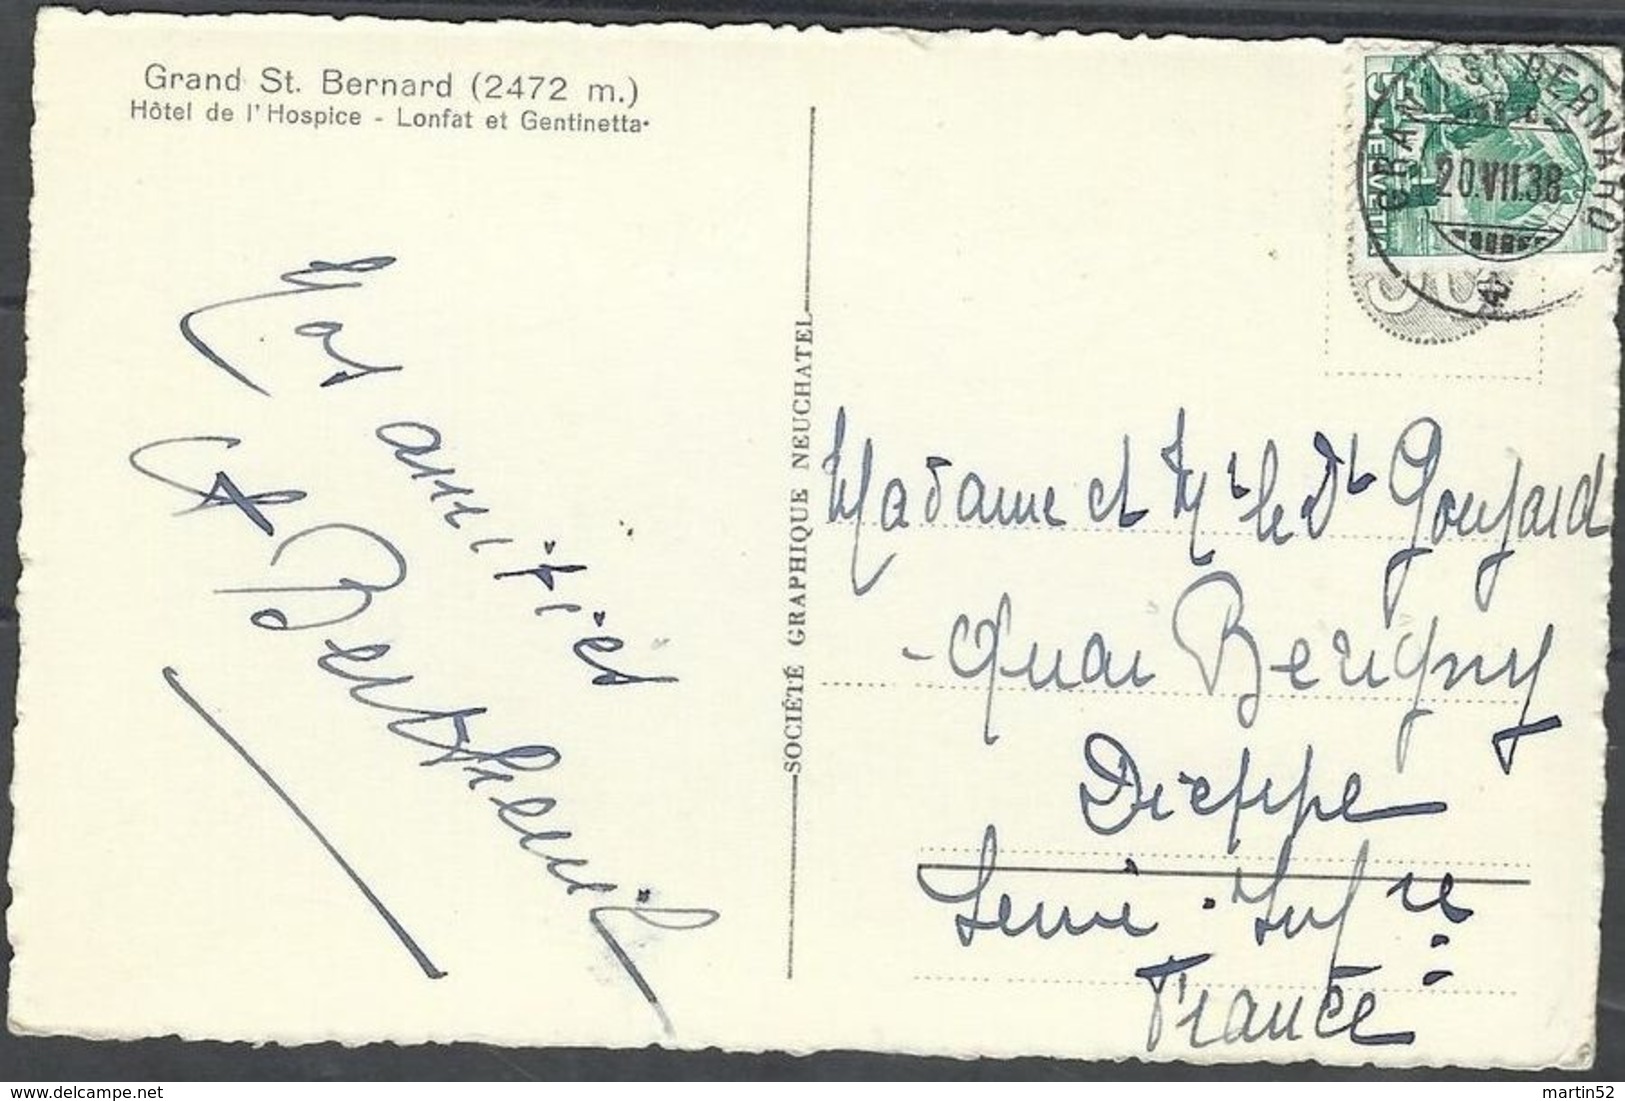 Grand St. Bernard (2472 m.)
Hôtel de l'Hospice - Lonfat et Gentinetta.
Nos amitiés
SOCIÉTÉ GRAPHIQUE NEUCHATEL
GRAND ST. BERNARD
20.VII.38
HELVETIA
Madame et Mr le Dr Goujard
- Quai Berigny
Dieppe
Seine-Infre
France
martin52